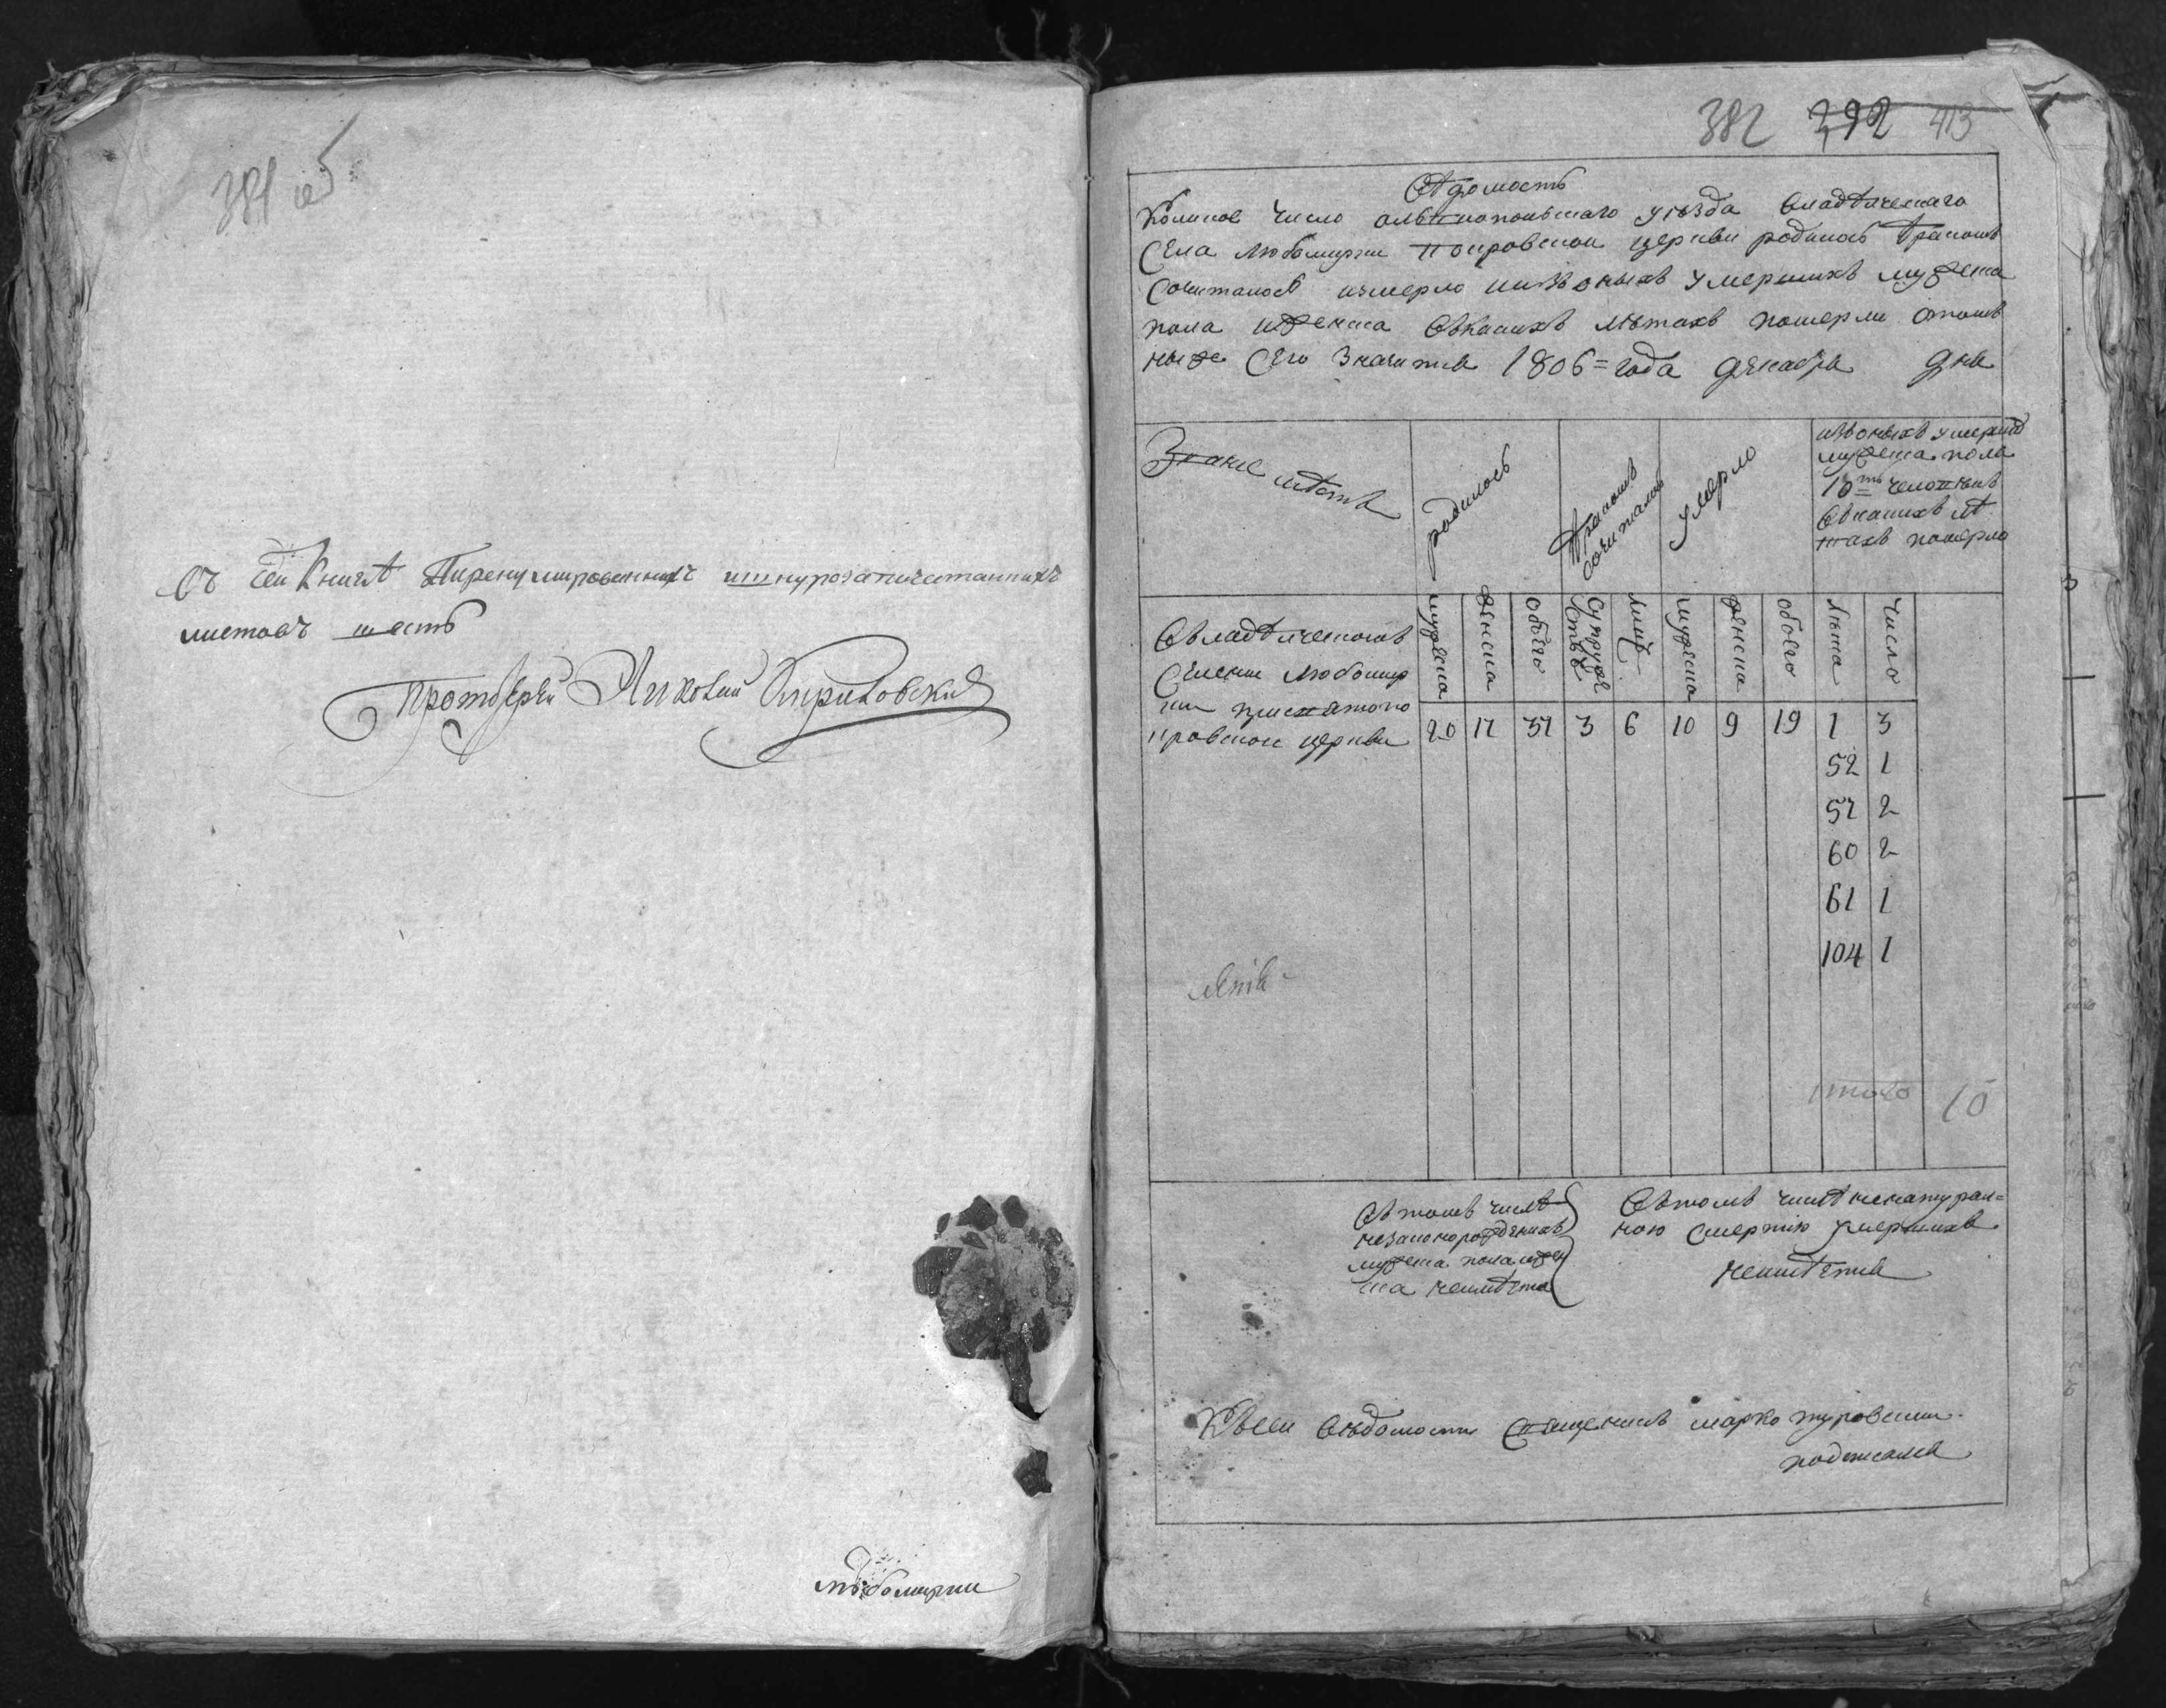 381 об
Въ сей Книгѣ Перенумированныхъ ишнурозапечатанныхъ
листовъ шесть
Протоіерей
Любомирки
382 392 413
Вѣдомость
Коликое число ольвиопольскаго уѣзда владѣлческаго
Села Любомирки покровской церкви родилось бракомъ
Сочиталось иумерло иизъоныхъ умершихъ мужеска
пола иженска въкакихъ лѣтахъ померли отомъ
ниже Сего значитъ 1806=года декабря дня
Звание мѣстъ
родилось
бракомъ
сочиталось
умерло
изъоныхъ умершихъ
мужеска пола
10ть человѣкъ
въкакихъ лѣ
тахъ померло
мужеска
женска
обоего
Супруже
ствъ
лицъ
мужеска
женска
обоего
лѣта
число
Овладѣлческомъ
Селении Любомир
ки присвятопо
кровской церкви
20 17 37 3 6 10 9 19 1 3
52 1
57 2
60 2
61 1
104 1
итого 10
Втомъ числѣ
незаконорожденихъ
мужеска пола ижен
ска неимѣетъ
Втомъ числѣ ненатурал=
ною смертію умершихъ
неимѣетъ
Ксей вѣдомости Священикъ марко туровский
подписалъ